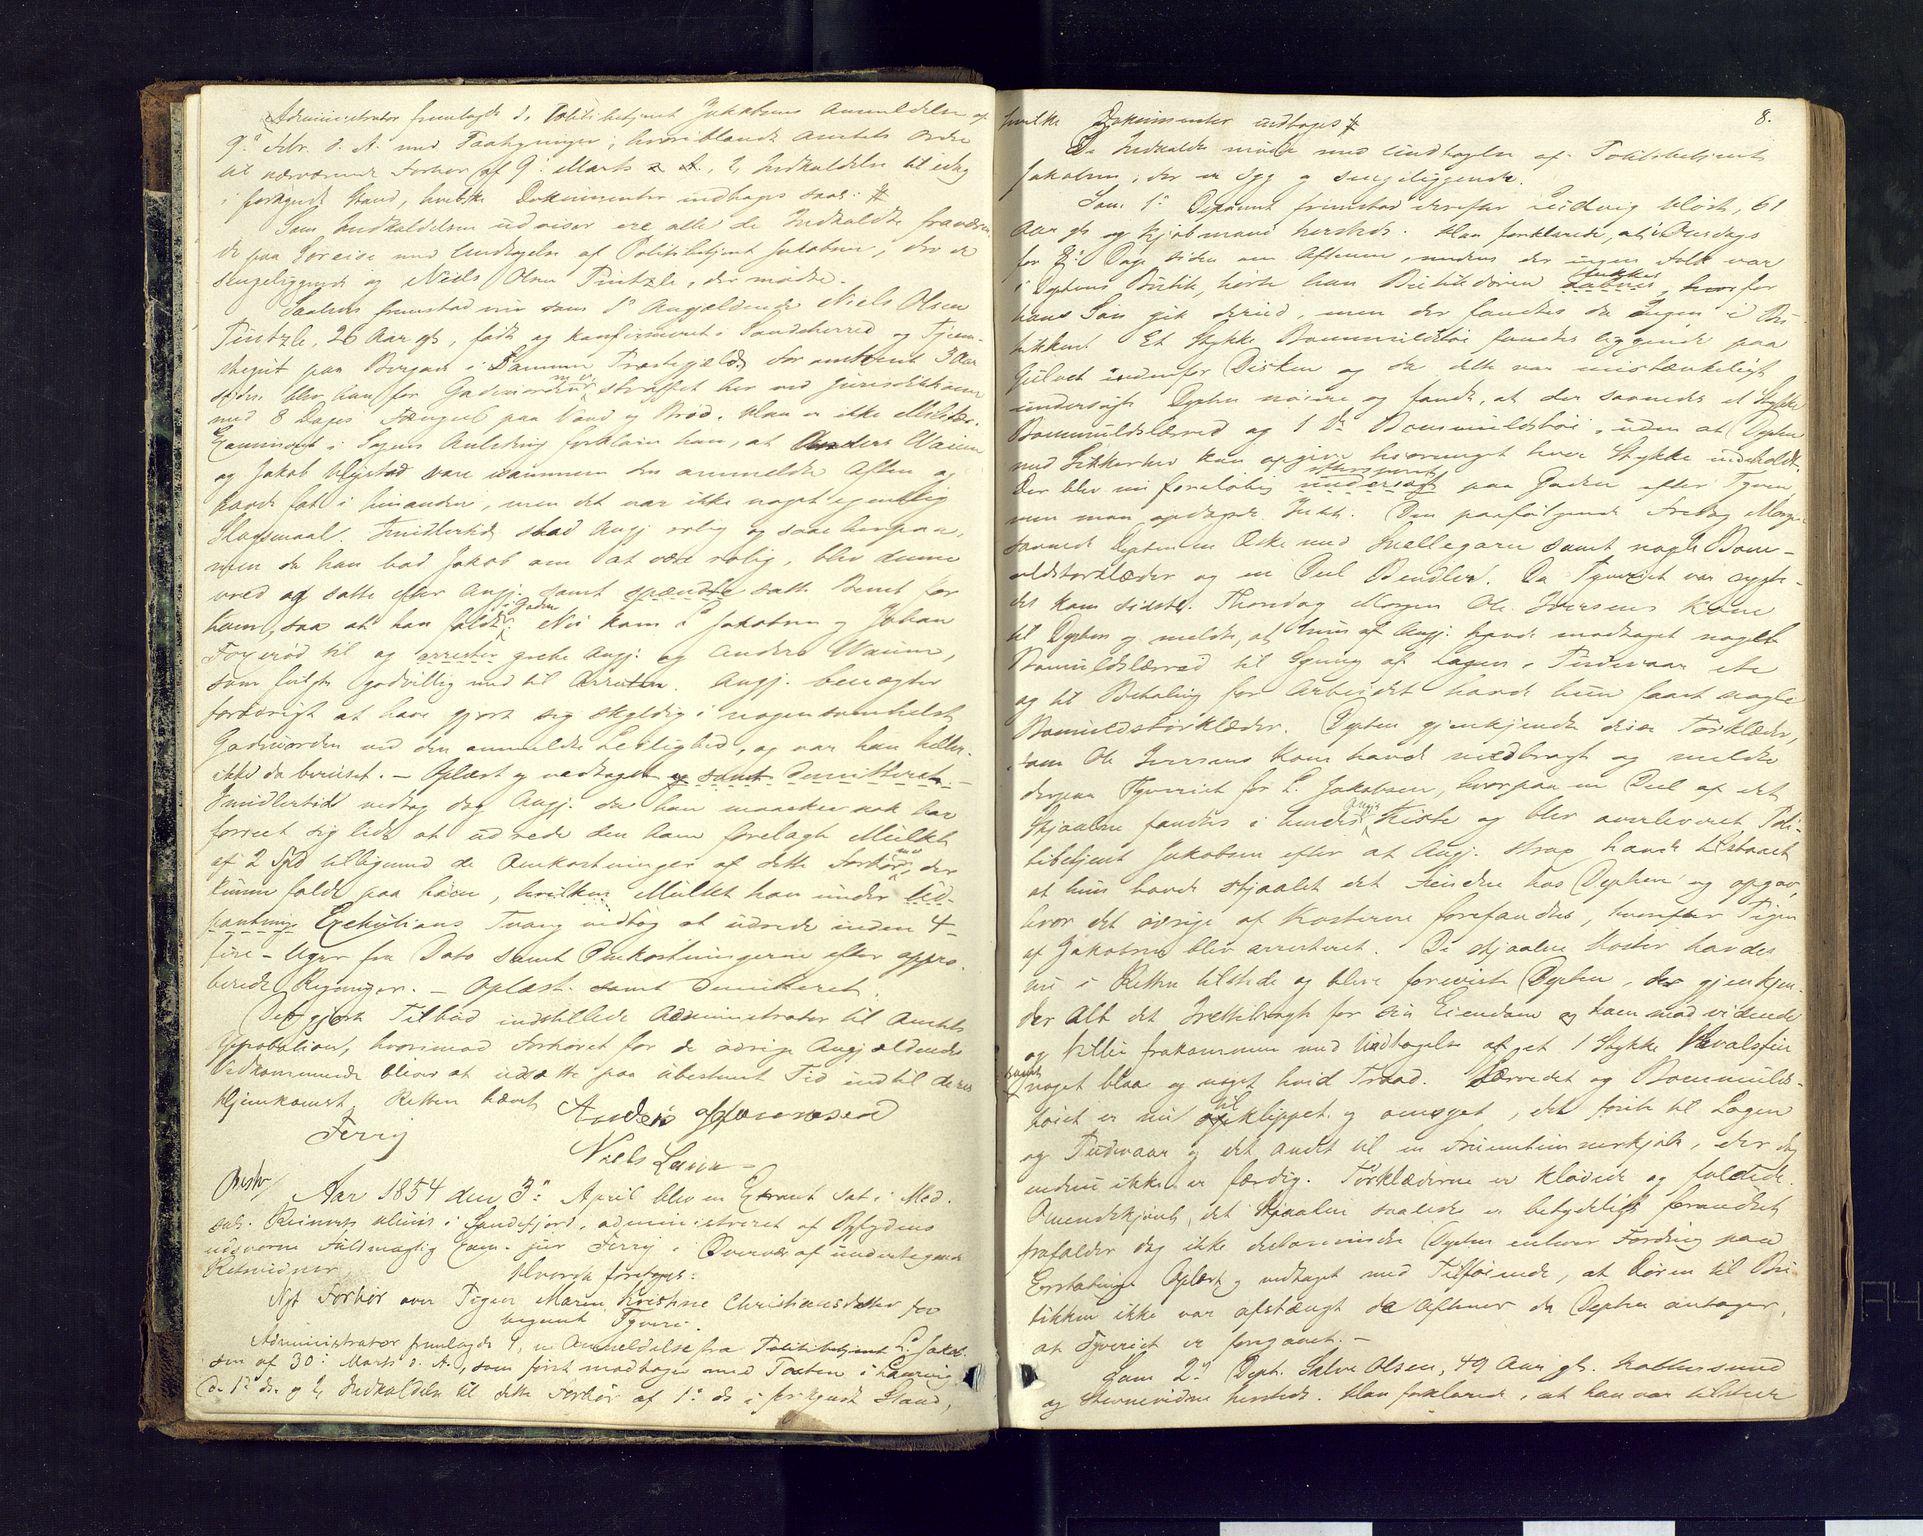 Administrator fremlagde 1, Politibetjent Jakobsens Anmeldelse af
9de Febr. d. A. med Paategninger, hvoriblandt Amtets Ordre
til nærværende Forhør af 9de Marts 2, Indkaldelse til idag
i forkyndt Stand, hvilke Dokumenter indtages saal:
Som Indkaldelsen udviser ere alle de Indkaldte fraværen
de paa Søreise med Undtagelse af Politibetjent Jakobsen, der er
sengeliggende og Niels Olsen Pintzle, der mødte.
Saaledes fremstod nu som 1ste Angjældende Niels Olsen
Pintzle, 26 Aar gl, født og konfirmeret i Sandeherred og
paa Bergan i Præstegjæld. For omtrent 3 Aar
siden blev han for Gadeuorden straffet her ved Jurisdiktionen
med 8 Dages Fængsel paa Vand og Brød. Han er ikke Militær.
Examineret i Sagens Anledning forklarer han, at Anders
og Jakob Vegstad vare sammen den anmeldte Aften og
havde fat i hinanden, men det var ikke noget egentlig
Slagsmaal. Imidlertid stod Angj. rolig og saae herpaa,
men da han bad Jakob om at være rolig, blev denne
vred og satte efter Angj. samt spændte satte Benet for
ham, saa at han faldt i Gaden. Nu kom Jakobsen og Johan
til og arrester grebe Angj: og Anders
som fulgte godvillig med til Arresten. Angj. benægter
forøvrigt at have gjort sig skyldig i nogensomhelst
Gadeuorden ved den anmeldte Leilighed, og var han heller
ikke da beruset. — Oplæst og vedtaget og samt Demitteret. —
Imidlertid vedtog dog Angj. da han maaskee nok har
forseet sig lidt at udrede den ham forelagte Mulkt
af 2 Spd tilligemed de Omkostninger af dette Forhør, der
kunne falde paa ham, hvilken Mulkt han under Ud-
pantnings Exekutions Tvang vedtog at udrede inden 4-
fire - Uger fra Dato samt Omkostningerne efter appro-
berede Regninger. — Oplæst. samt Demitteret.
Det gjorte Tilbud indstillede Administrator til Amtets
Approbation, hvorimod Forhøret for de øvrige Angjældendes
Vedkommende bliver at udsætte paa ubestemt Tid indtil deres
Hjemkomst. Retten hævet
Ferry
Anders Hansen
Niels Larsen
Aar 1854 den 3die April blev en Extraret sat i Mad.
Reiners Huus i Sandefjord, administreret af Byfogdens
edsvorne Fuldmægtig Exam. jur Ferry i Overvær af undertegnede
Retsvidner. Hvorda foretoges:
Nyt Forhør over Pigen Maren Kristine Christiansdatter for
begaaet Tyveri.
Administrator fremlagde 1, en Anmeldelse fra Politibetjent L. Jakob-
sen af 30te Marts d. A., som først modtages med Posten i Laurvig
den 1ste ds. og 2, Indkaldelse til dette Forhør af 1ste ds i forkyndt Stand,
8.
hvilke Dokumenter indtages
De Indkaldte mødte med Undtagelse af Politibetjent
Jakobsen, der er syg og sengeliggende.
Som 1ste Deponent fremstod derefter Ludvig, 61
Aar gl og Kjøbmand hersteds. Han forklarede, at Onsdags
for Dage siden om Aftenen, medens der ingen Folk var
i Deptens Butik, hørte han Butikdøren lukkes, hvorfor
hans Søn gik derind, men der fandtes da Ingen i Bu-
tikken. Et Stykke Bommuldstøi fandtes liggende paa
Gulvet indenfor Disken og da dette var mistænkeligt
undersøgte Depten nøiere og fandt, at der savnedes et Stykke
Bommuldslærred og 1 Do Bommuldstøi, uden at Depten
med Sikkerhed kan opgive hvormeget hver Stykke indeholdt.
Der blev nu foreløbig efterspurgt paa Gaden efter Tyven,
men man opdagede Intet. Den paafølgende Fredag Morgen
savnede Depten en Æske med Hæklegarn samt nogle Bom-
uldstørklæder og en Deel Bændler. Da Tyveriet var rygte-
des kom sidste Thorsdag Morgen Ole Iversens Kone
til Depten og meldte, at hun af Angj. havde modtaget noget
Bomuldslærred til Syning af Lagen, Pudevaar etc
og til Betaling for Arbeidet havde hun faaet nogle
Bomuldstørklæder. Depten gjenkjendte disse Tørklæder,
som Ole Iversens Kone havde medbragt og meldte
derpaa Tyveriet for L. Jakobsen, hvorpaa en Deel af det
Stjaalne fandtes i Angjs Kiste og blev overleveret Poli-
tibetjent Jakobsen efter at Angj. strax havde tilstaaet
at hun havde stjaalet det Fundne hos Depten og opgav,
hvor det øvrige af Kosterne forefandtes, hvorefter Pigen
af Jakobsen blev arresteret. De stjaalne Koster havdes
nu i Retten tilstede og bleve foreviste Depten, der gjenkjen-
der Alt det Fremlagte for sin Eiendom og ham modvidende
og Villie frakommen med Undtagelse af et 1 Stykke
noget blaat og noget hvid Traad. Lærredet og Bommulds-
tøiet er nu tilklippet og omsyet, det første til Lagen
og Pudevaar og det andet til en Fruentimmerkjole, der dog
endnu ikke er færdig. Tørklæderne ere klødede og foldede.
Omendskjøndt det Stjaalne saaledes er betydeligt forandret
frafalder dog ikke destomindre Depten enhver Fordring paa
Erstatning. Oplæst og vedtaget med Tilføiende, at Døren til Bu-
tikken ikke var afstængt de Aftener da Depten antager,
at Tyveriet er foregaaet. —
Som 2den Dept. Salve Olsen, 49 Aar gl.
og Stevnevidne hersteds. Han forklarede, at han var tilstede